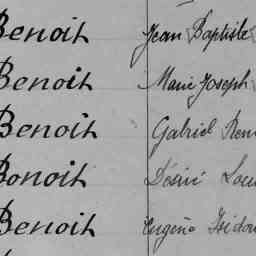 Benoit Jean Baptiste
Benoit Marie Joseph
Benoit Gabriel
Bonoit Désiré
Benoit Eugène Isidore